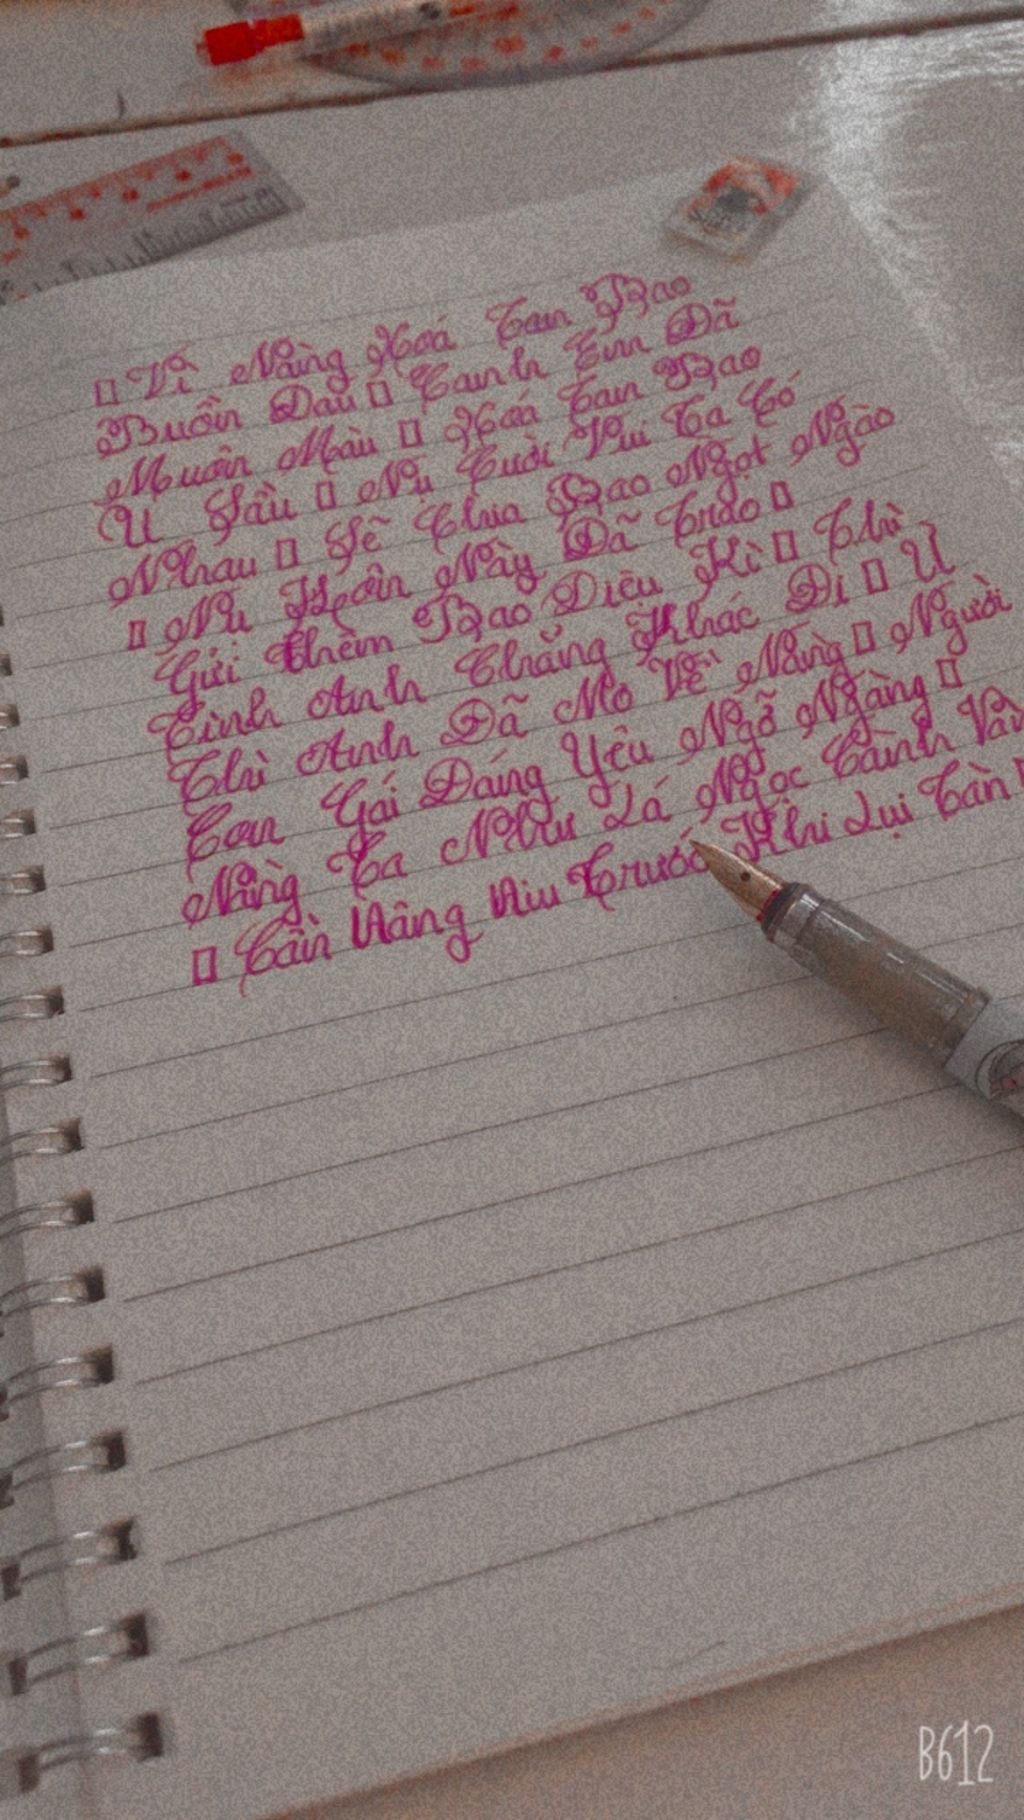 ▯ Vì Nàng Hoá Tan Bao
Buồn Đau ▯ Canh Tim Đã
Muôn Màu ▯ Hoá Tan Bao
U Sầu ▯ Nụ Cười Vui Ta Có
Nhau ▯ Sẽ Chia Bao Ngọt Ngào
▯ Nụ Hôn Này Đã Trao ▯
Gửi Thêm Bao Diệu Kì ▯ Thì
Tình Anh Chẳng Khác Đi ▯ Ừ
Thì Anh Đã Mơ Về Nàng ▯ Người
Con Gái Đáng Yêu Ngỡ Ngàng ▯
Nàng Ta Như Lá Ngọc Cành
▯ Cần Nâng Niu Trước Khi Lụi Tàn ▯
B612